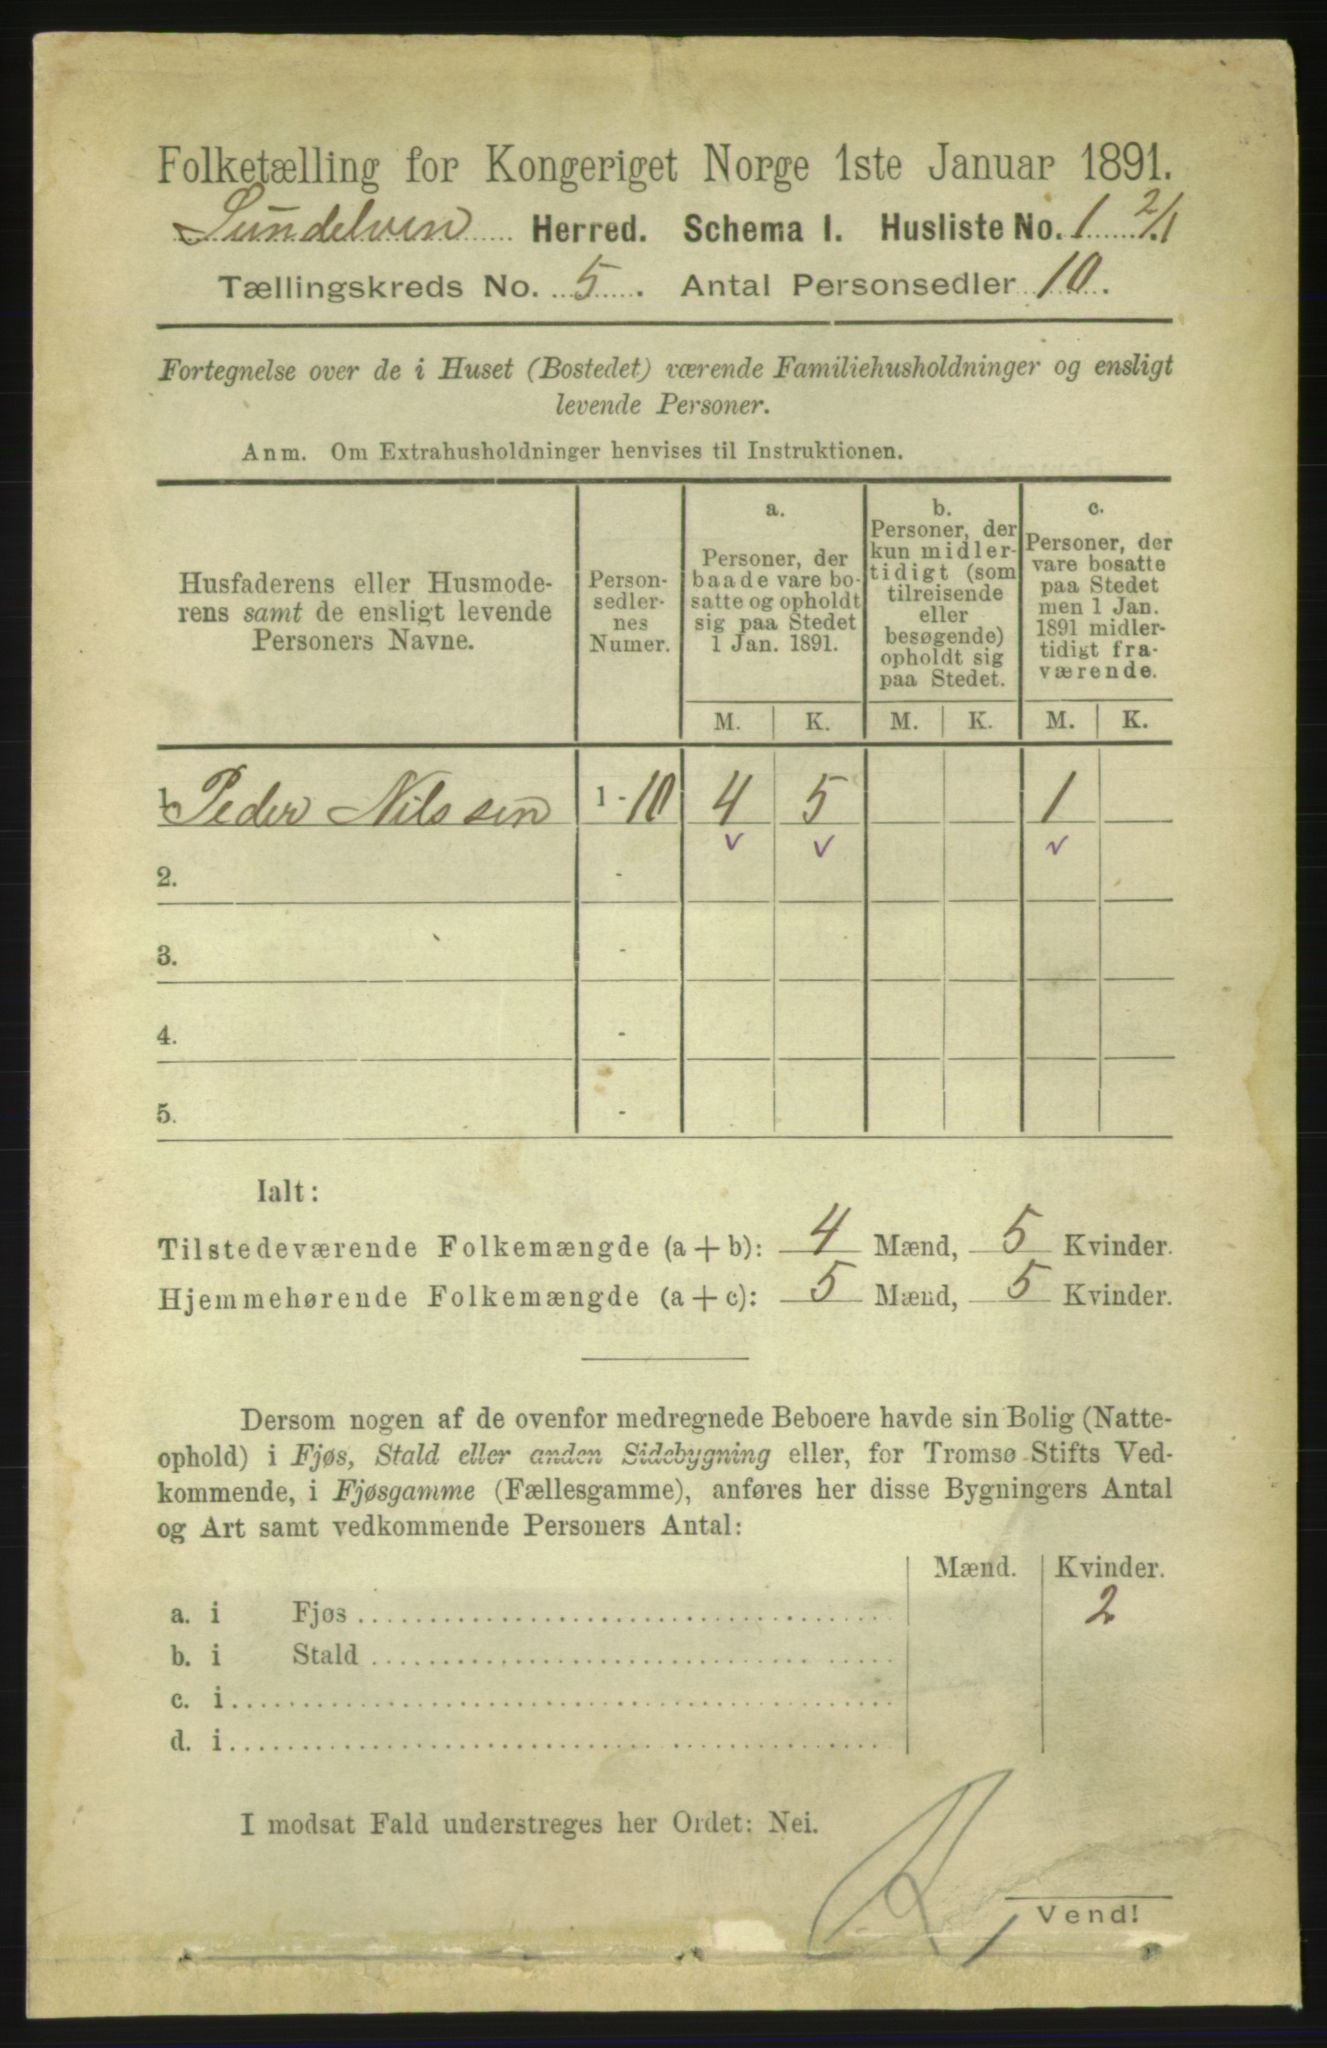 Folketælling for Kongeriget Norge 1ste Januar 1891.
Sundelven Herred. Schema I. Husliste No. 1 2/1
Tællingskreds No. 5. Antal Personsedler 10.
Fortegnelse over de i Huset (Bostedet) værende Familiehusholdninger og ensligt
levende Personer.
Anm. Om Extrahusholdninger henvises til Instruktionen.
Husfaderens eller Husmode-
rens samt de ensligt levende
Personers Navne.
Person-
sedler-
nes
Numer.
a.
Personer, der
baade vare bo-
satte og opholdt
sig paa Stedet
1 Jan. 1891.
b.
Personer, der
kun midler-
tidigt (som
tilreisende
eller
besøgende)
opholdt sig
paa Stedet.
c.
Personer, der
vare bosatte
paa Stedet
men 1 Jan.
1891 midler-
tidigt fra-
værende.
M. K. M. K. M. K.
1. Peder Nilssen 1 - 10 4 5 1
2. -
3. -
4. -
5. -
Ialt:
Tilstedeværende Folkemængde (a + b): 4 Mænd, 5 Kvinder.
Hjemmehørende Folkemængde (a + c): 5 Mænd, 5 Kvinder.
Dersom nogen af de ovenfor medregnede Beboere havde sin Bolig (Natte-
ophold) i Fjøs, Stald eller anden Sidebygning eller, for Tromsø Stifts Ved-
kommende, i Fjøsgamme (Fællesgamme), anføres her disse Bygningers Antal
og Art samt vedkommende Personers Antal:
Mænd. Kvinder.
a. i Fjøs 2
b. i Stald
c. i
d. i
I modsat Fald understreges her Ordet: Nei.
Vend!